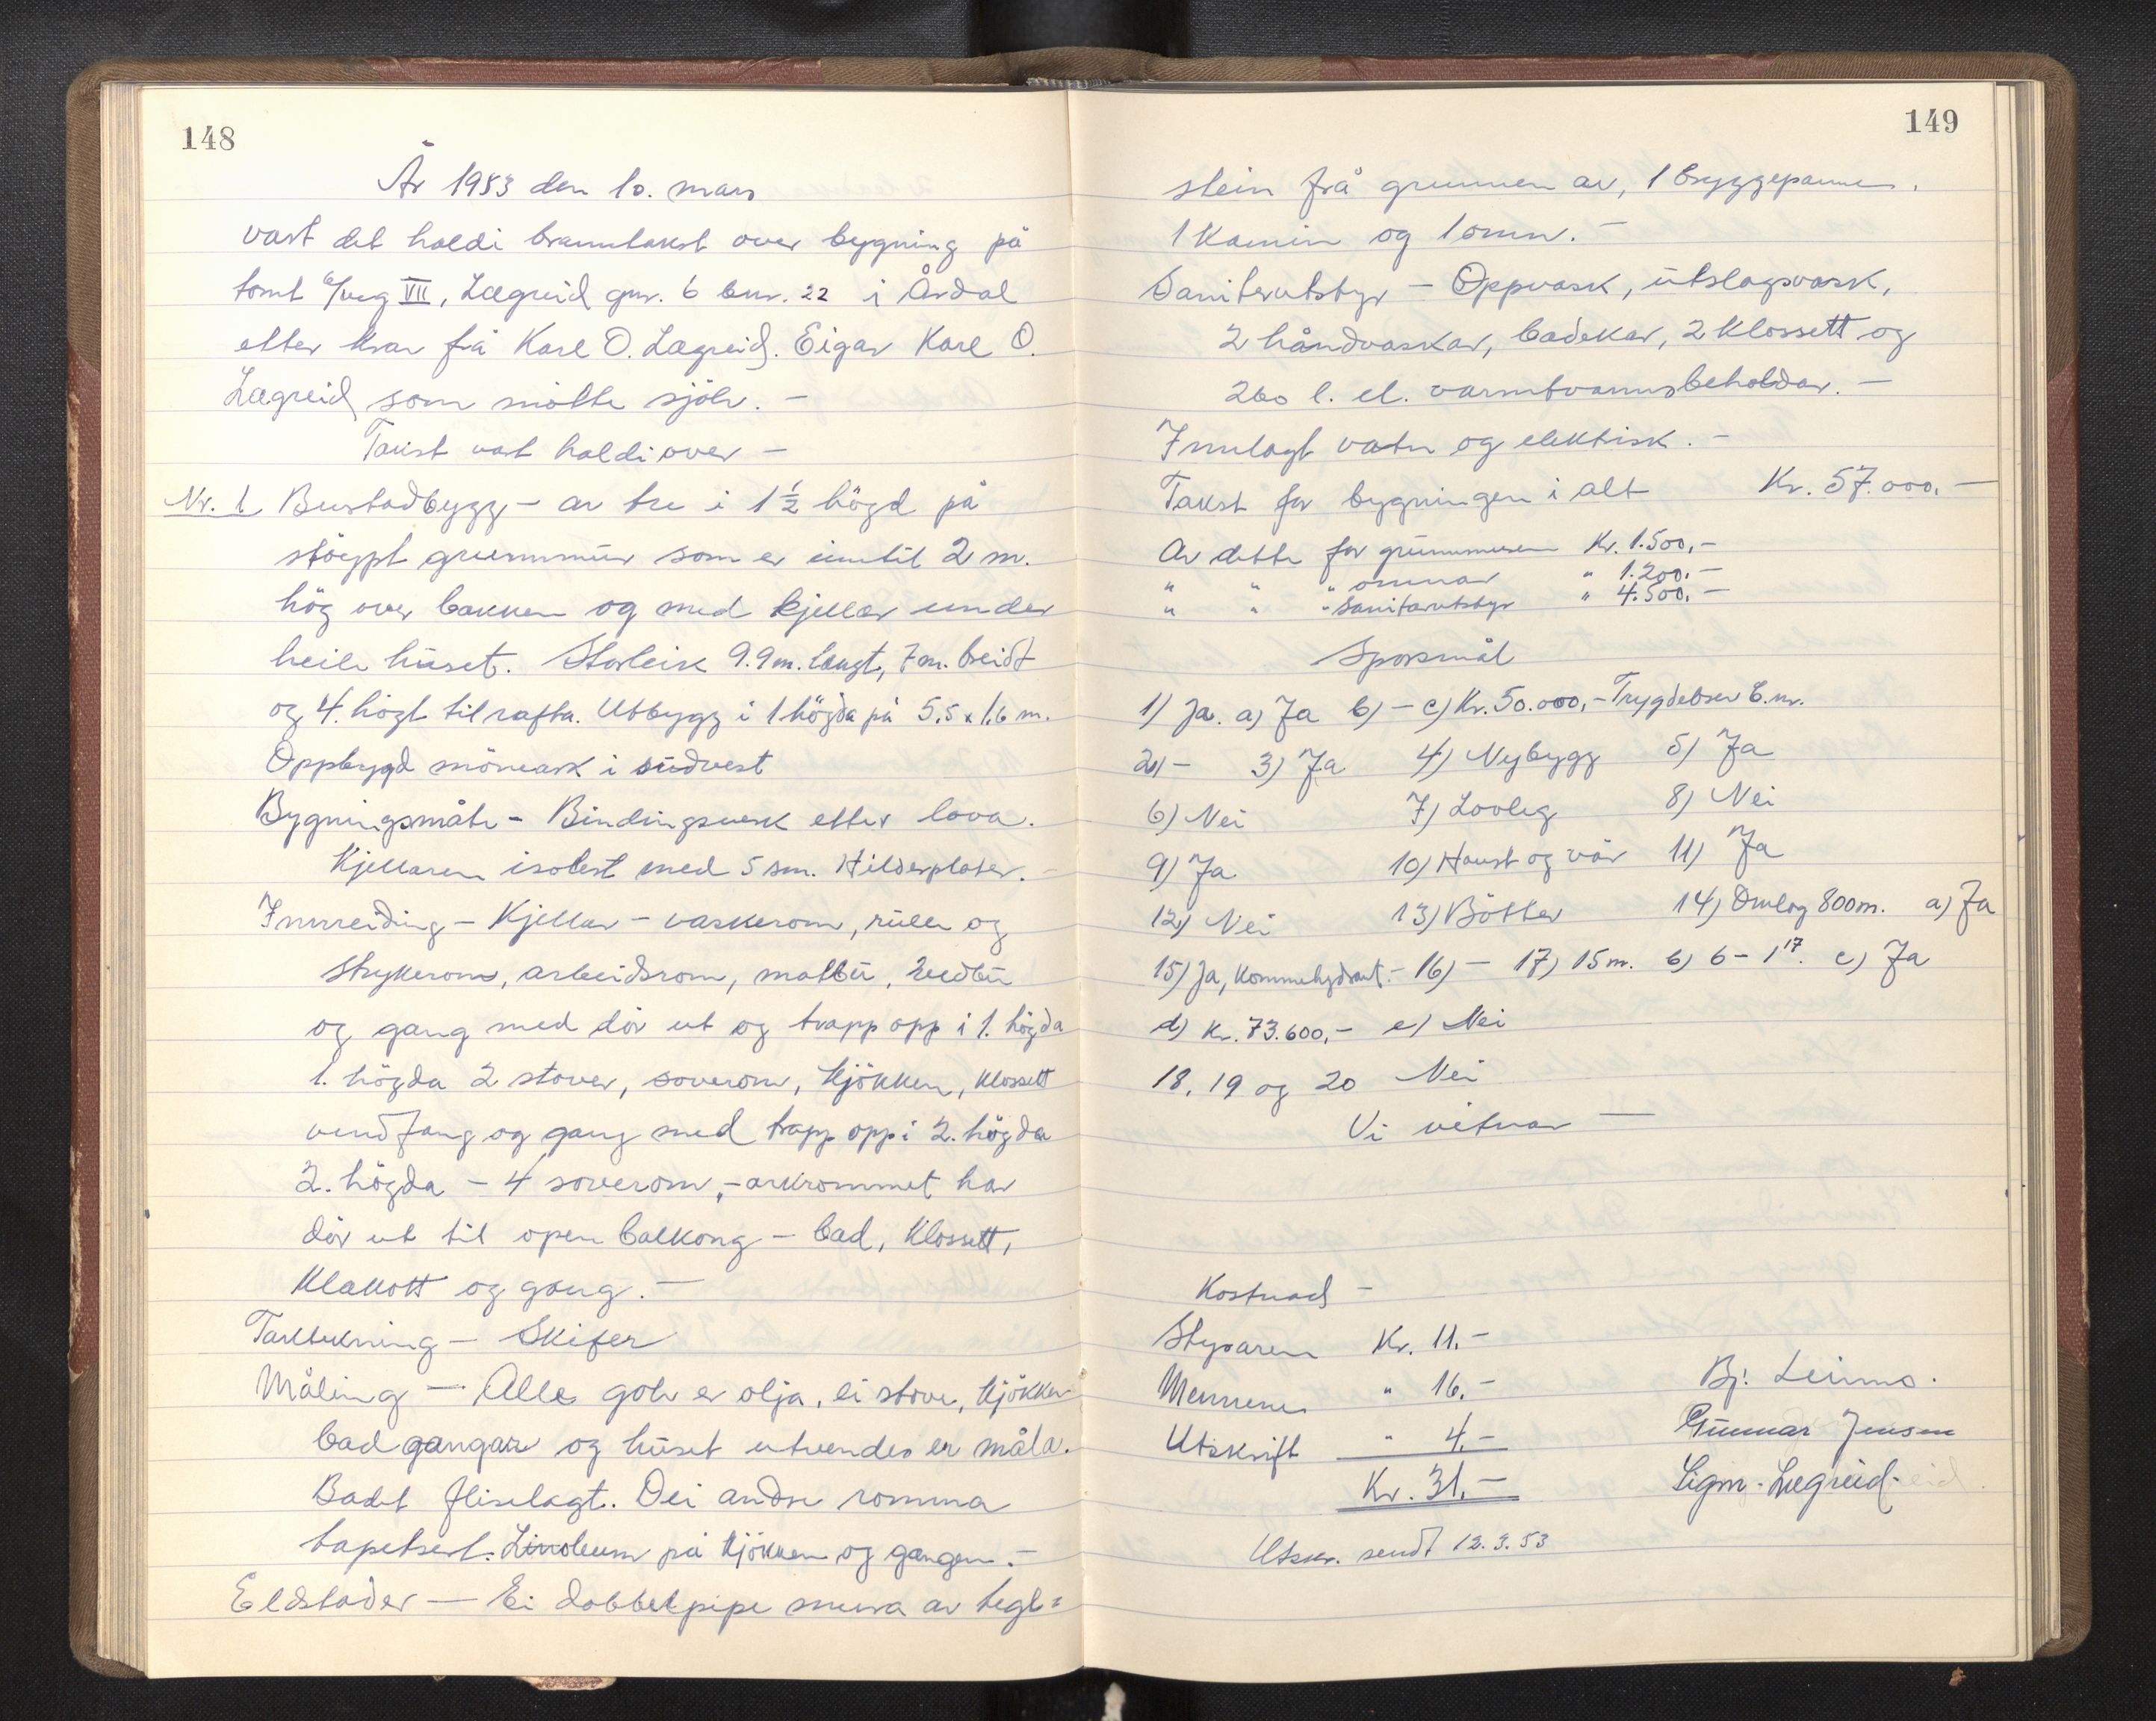 148
År 1953 den 10. mars
vart det haldi branntakst over bygning på
tomt 6/veg VII, Lægreid gnr. 6 bnr. 22 i Årdal
etter krav frå Karl O. Lægreid. Eigar Karl O.
Lægreid som møtte sjölv. -
Takst vart haldi over -
Nr. 1 Bustadbygg - av tre i 1 1/2 högd på
stöypt grunnmur som er inntil 2 m.
hög over bakken og med kjellar under
heile huset. Storleik 9.9 m. langt, 7 m. breidt
og 4. högt til rafta. Utbygg i 1 högda på 5,5 x 1,6 m.
Oppbygd möneark i sudvest
Bygningsmåte - Bindingsverk etter lova.
Kjellaren isolert med 5 sm. Hilderplater. -
Innreiding - Kjellar - vaskerom, rulle og
strykerom, arbeidsrom, matbu, vedbu
og gang med dör ut og trapp opp i 1. högda
1. högda 2 stover, soverom, kjökken, klossett
vindfang og gang med trapp opp i 2. högda
2. högda - 4 soverom, - arkrommet har
dör ut til open balkong - bad, klossett,
klakott og gang. -
Taktekning - Skifer
Måling - Alle golv er olja, ei stove, kjökken
bad gangar og huset utvendes er måla.
Badet fliselagt. Dei andre romma
tapetsert. Linoleum på kjökken og gangen. -
Eldstader - Ei dobbeltpipe mura av tegl=
149
stein frå grunnen av, 1 bryggepanne,
1 kamin og 1 omn. -
Saniterutstyr - Oppvask, utslagsvask,
2 håndvaskar, badekar, 2 klossett og
200 l. el. varmtvannsbeholdar. -
Innlagt vatn og elektrisk. -
Takst for bygningen i alt Kr. 57.000,-
Av dette for grunnmuren Kr. 1.500,-
" " " omnar " 1.200,-
" " " sanitærutstyr " 4.500,-
Spörsmål
1) Ja. a) Ja b) - c) Kr. 50.000,- Trygdelser b.nr.
2) - 3) Ja 4) Nybygg 5) Ja
6) Nei 7) Lovleg 8) Nei
9) Ja 10) Haust og vår 11) Ja
12) Nei 13) Bötter 14) Omlag 800 m. a) Ja
15) Ja, kommehydrant. - 16) - 17) 15 m. b) 6 - 1 17. c) Ja
d) Kr. 73.600,- e) Nei
18, 19 og 20 Nei
Vi vitnar -
Kostnad -
Styraren Kr. 11.-
Mennene " 16.-
Utskrift " 4.-
Kr. 31.-
Bj. Leirmo.
Gunnar Jensen
Sigm. Lægreid.
Utskr. sendt 12.3.53